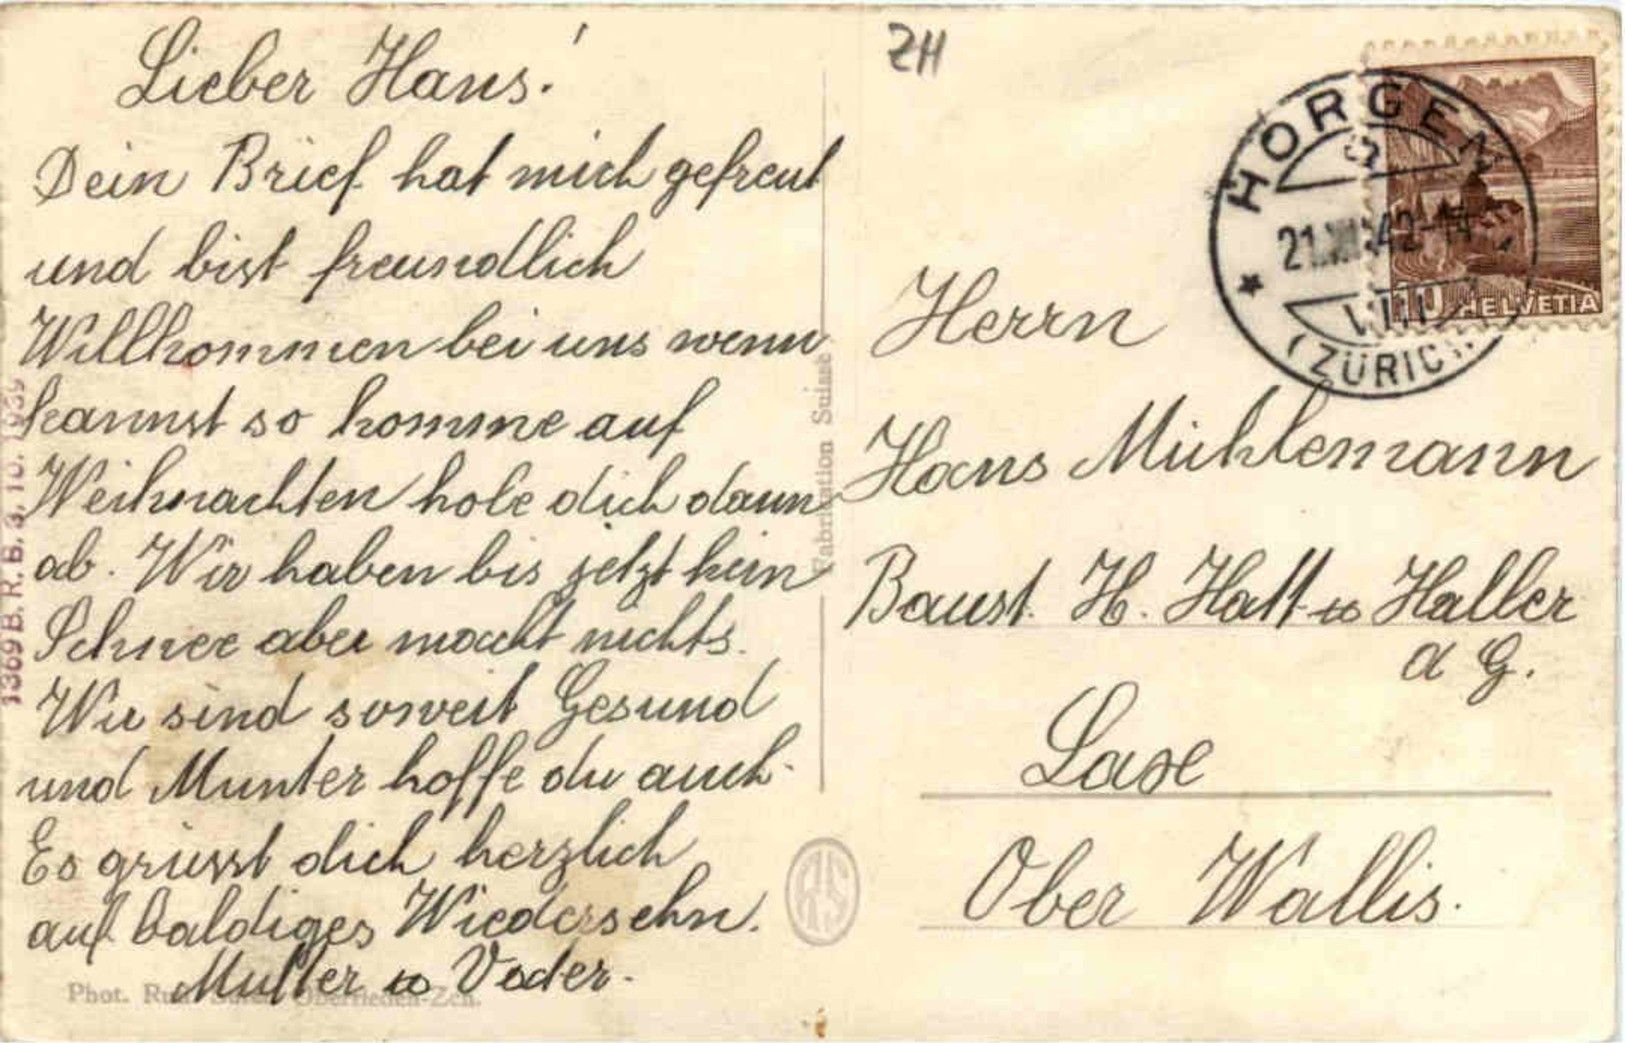 Lieber Hans!
Dein Brief hat mich gefreut
und bist freundlich
Willkommen bei uns wenn
kannst so komme auf
Weihnachten hole dich dann
ab. Wir haben bis jetzt kein
Schnee aber macht nichts.
Wir sind soweit Gesund
und Munter hoffe du auch.
Es grüsst dich herzlich
auf baldiges Wiedersehn.
Mutter & Vader.
Phot. Oberrieden-Zch.
1369 B. R. B. 3. 10. 1939
Fabrication Suisse
ZH
HORGEN
21. 42-
(ZÜRICH)
10 HELVETIA
Herrn
Hans Mühlemann
Baust. H. Hatt & Haller
A G.
Laxe
Ober Wallis.